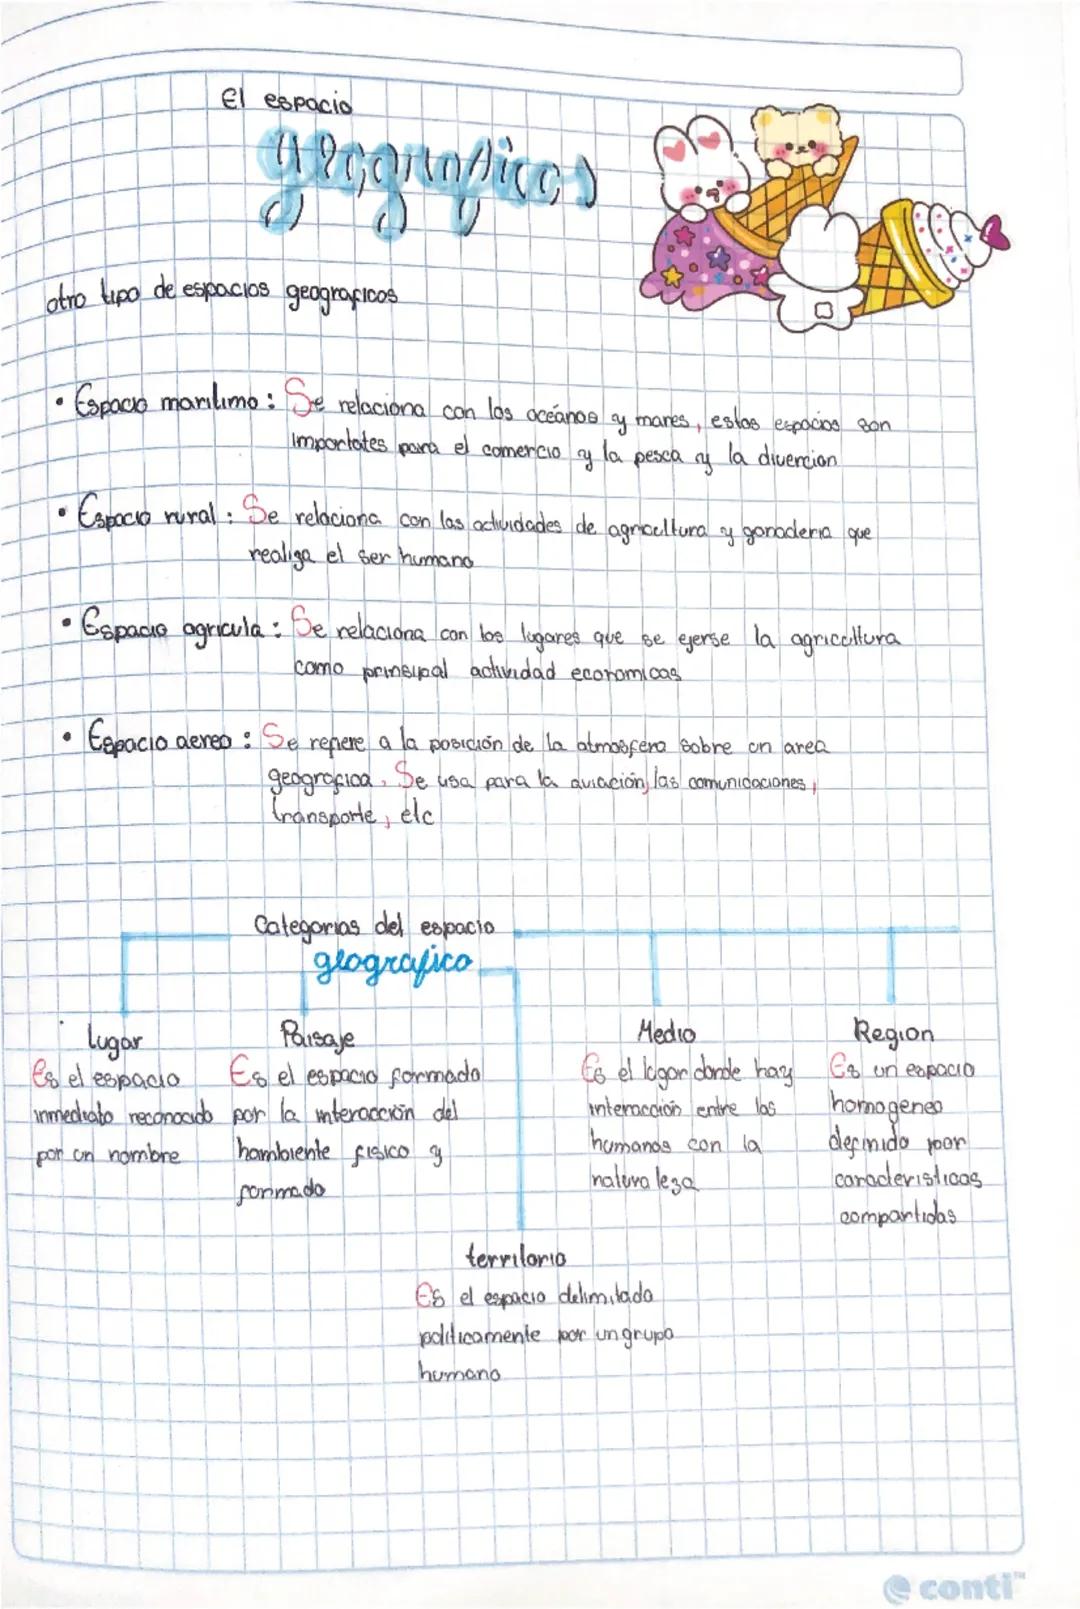 El espacio
geograficos
otro tipo de espacios geograficos
• Espacio maritimo: Se relaciona con los océanos y mares, estos espacios son
importates para el comercio y la pesca y la divercion
• Espacio rural: Se relaciona con las actividades de agricultura y ganaderia que
realiga el ser humano
• Espacio agricula: Se relaciona con los lugares que se ejerse la agricultura
como prinsipal actividad economicas
• Espacio aereo: Se refiere a la posición de la atmosfera sobre un area
geografica. Se usa para la aviación, las comunicaciones,
transporte, etc
Categorias del espacio
geografico
lugar
Es el espacio
inmediato reconocido
por un nombre
Paisaje
Es el espacio formado
por la interacción del
hambiente fisico y
formado
Medio
Es el lugar donde hay
interacción entre los
humanos con la
naturaleza
Region
Es un espacio
homogeneo
definido por
caracteristicas
compartidas
territorio
Es el espacio delimitado
politicamente por un grupo
humano
conti™